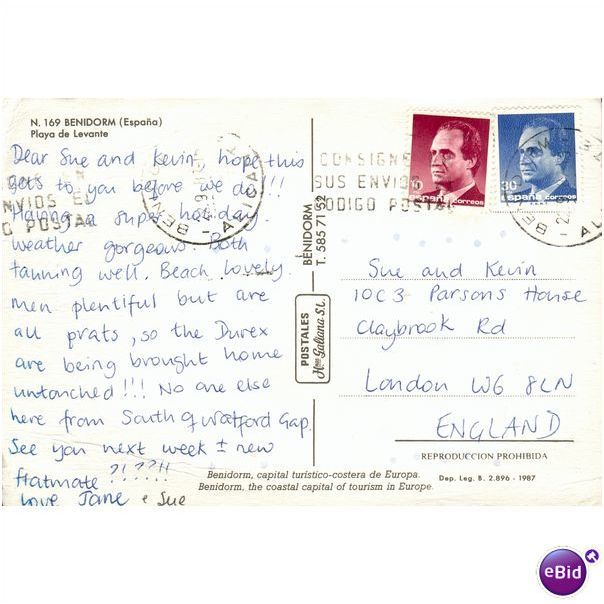 N. 169 BENIDORM (España)
Playa de Levante
Dear Sue and Kevin, hope this
gets to you before we do!!!
Having a super holiday.
weather gorgeous. Both
tanning well. Beach lovely.
men plentiful but are
all prats, so the Durex
are being brought home
untouched!!! No one else
here from South of Watford Gap.
See you next week ± new
flatmate ?!??!!
love Jane & Sue
BENIDORM
T. 585 71 52
POSTALES
Hnos Galiana S.L.
CONSIGNE
SUS ENVIOS
CODIGO POSTAL
NVIOS EL
O POSTAL
BENI
ALICAN
España correos
30
España correos
Sue and Kevin
10C3 Parsons House
Claybrook Rd
London W6 8LN
ENGLAND
REPRODUCCION PROHIBIDA
Benidorm, capital turístico-costera de Europa.
Benidorm, the coastal capital of tourism in Europe.
Dep. Leg. B. 2.896 - 1987
eBid